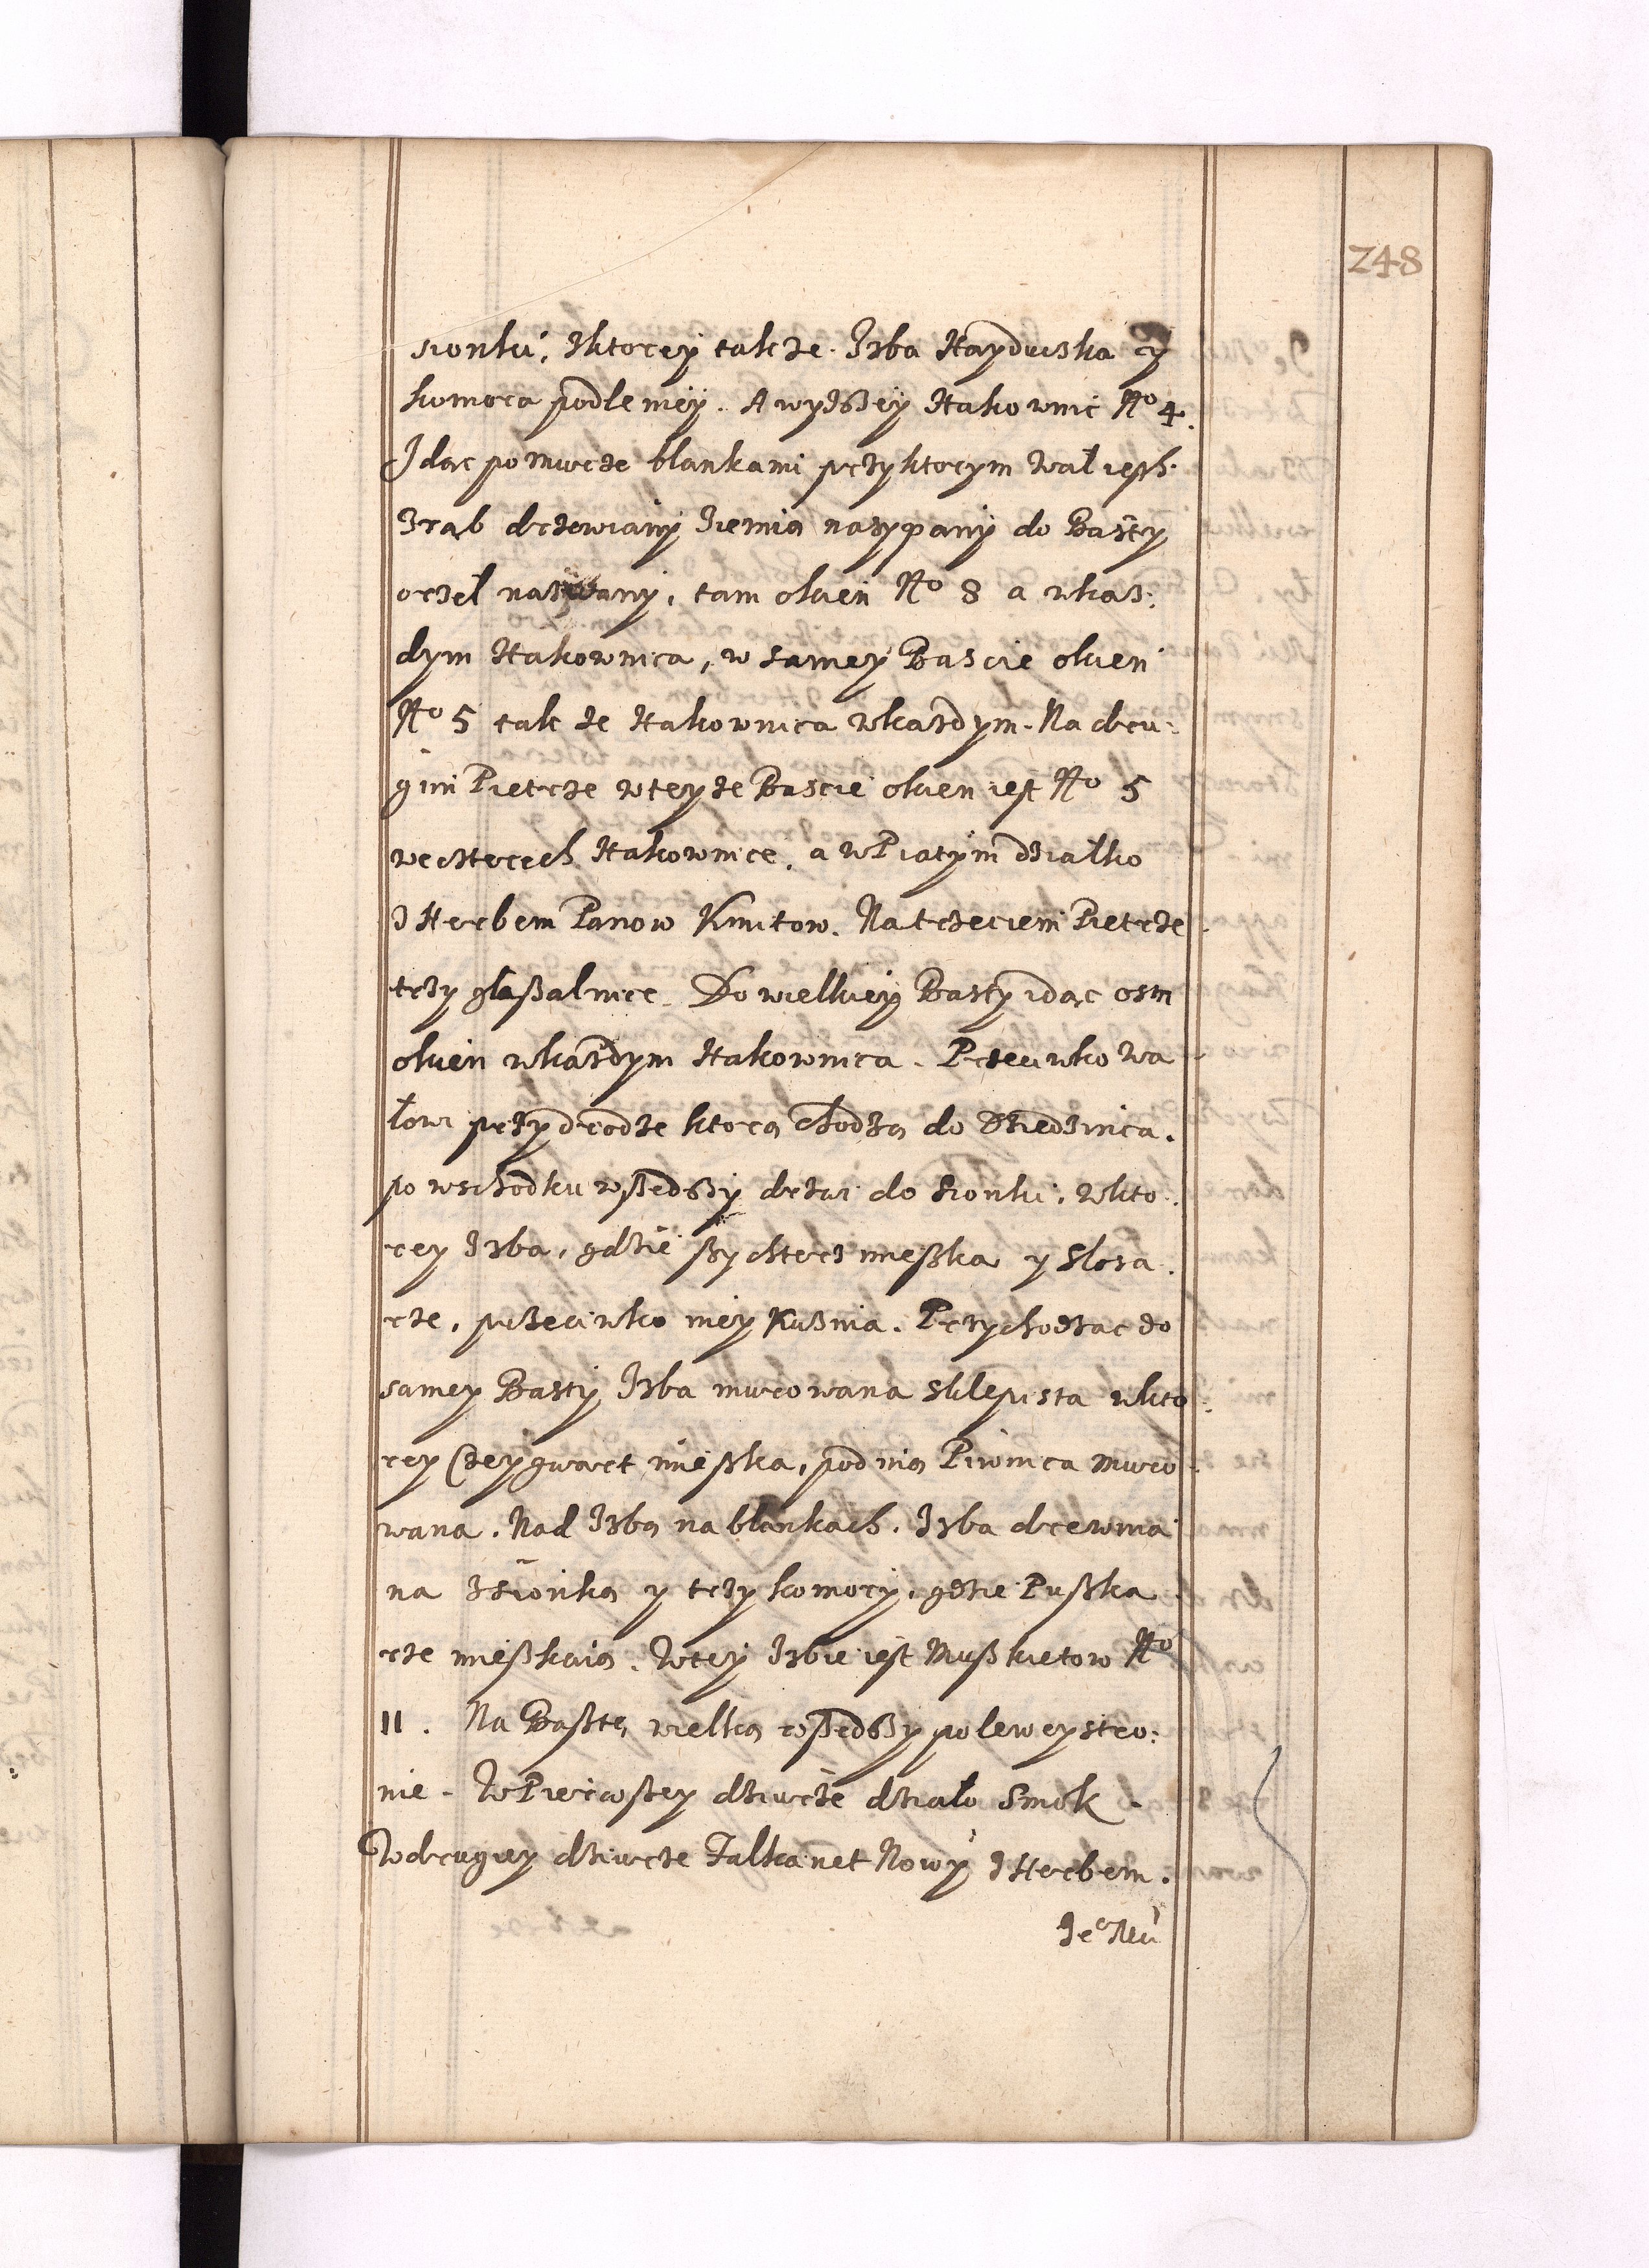 248
sionki, zktorey takze Izba Hayducska y
komora podle niey. A wyzszey Hakownic No 4.
Idąc po murze blankami przyktorym wał iest
zrąb drzewiany ziemią nasypany do Basty
orzeł nazwany, tam okien No 8 a wkaz:
dym Hakownica, w samey Bascie okien
No 5 tak ze Hakownica wkazdym. Na dru:
gim Pietrze wteyze Bascie okien iest No 5
weczterech Hakownice, a wPiątym działko
z Herbem Panow Kmitow. Na trzeciem Pietrze
trzy głaszalnice. Do wielkiey Basty idąc osm
okien wkazdym Hakownica. Przeciwko wa
łow przydrodze ktorą chodzą do Dziedzinca.
po wschodku wszedszy drzwi do sionki, wkto:
rey Izba, gdzie szychterz mieszka y slosa:
rze, przeciwko niey Kuznia. Przychodząc do
samey Basty Izba murowana sklepista wkto:
rey Czeygwart mieszka, pod nią Piwnica muro:
wana. Nad Izbą na blankach. Izba drewnia
na zsionką y trzy komory, gdzie Puszka:
rze mieszkaią. Wtey Izbie iest Muszkietow No
11. Na Basztę wielką wszedszy polewey stro:
nie. WPierwszey dziurze działo Smok.
Wdrugiey dziurze Falkanet Nowy z Herbem.